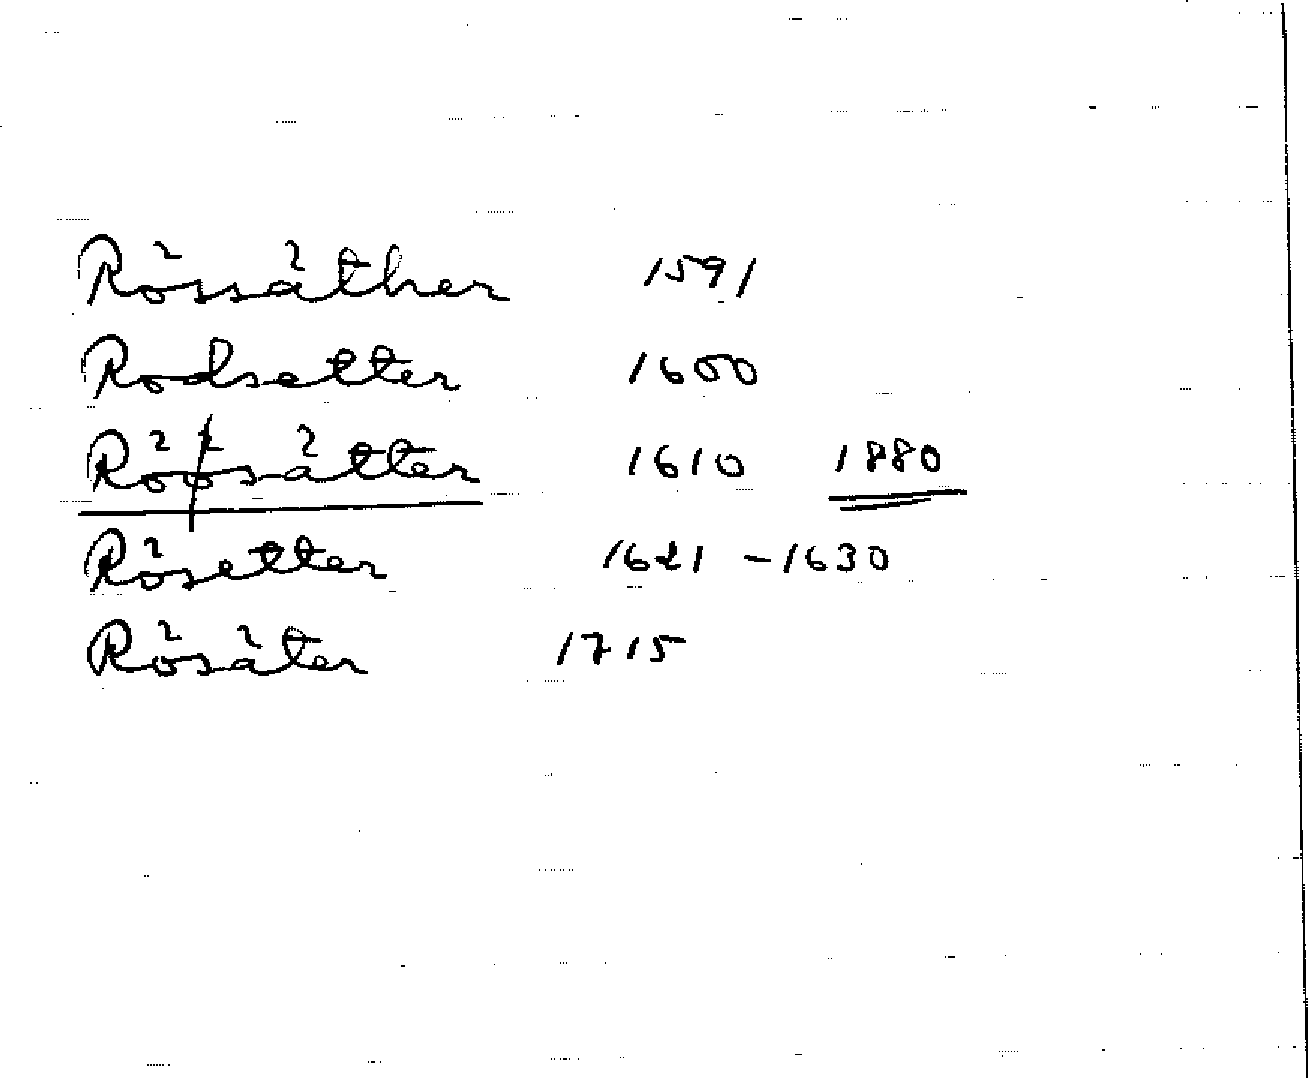 Rössäther 1591
Rodsetter 1600
Röösätter 1610 1880
Rösetter 1621 - 1630
Rösäter 1715